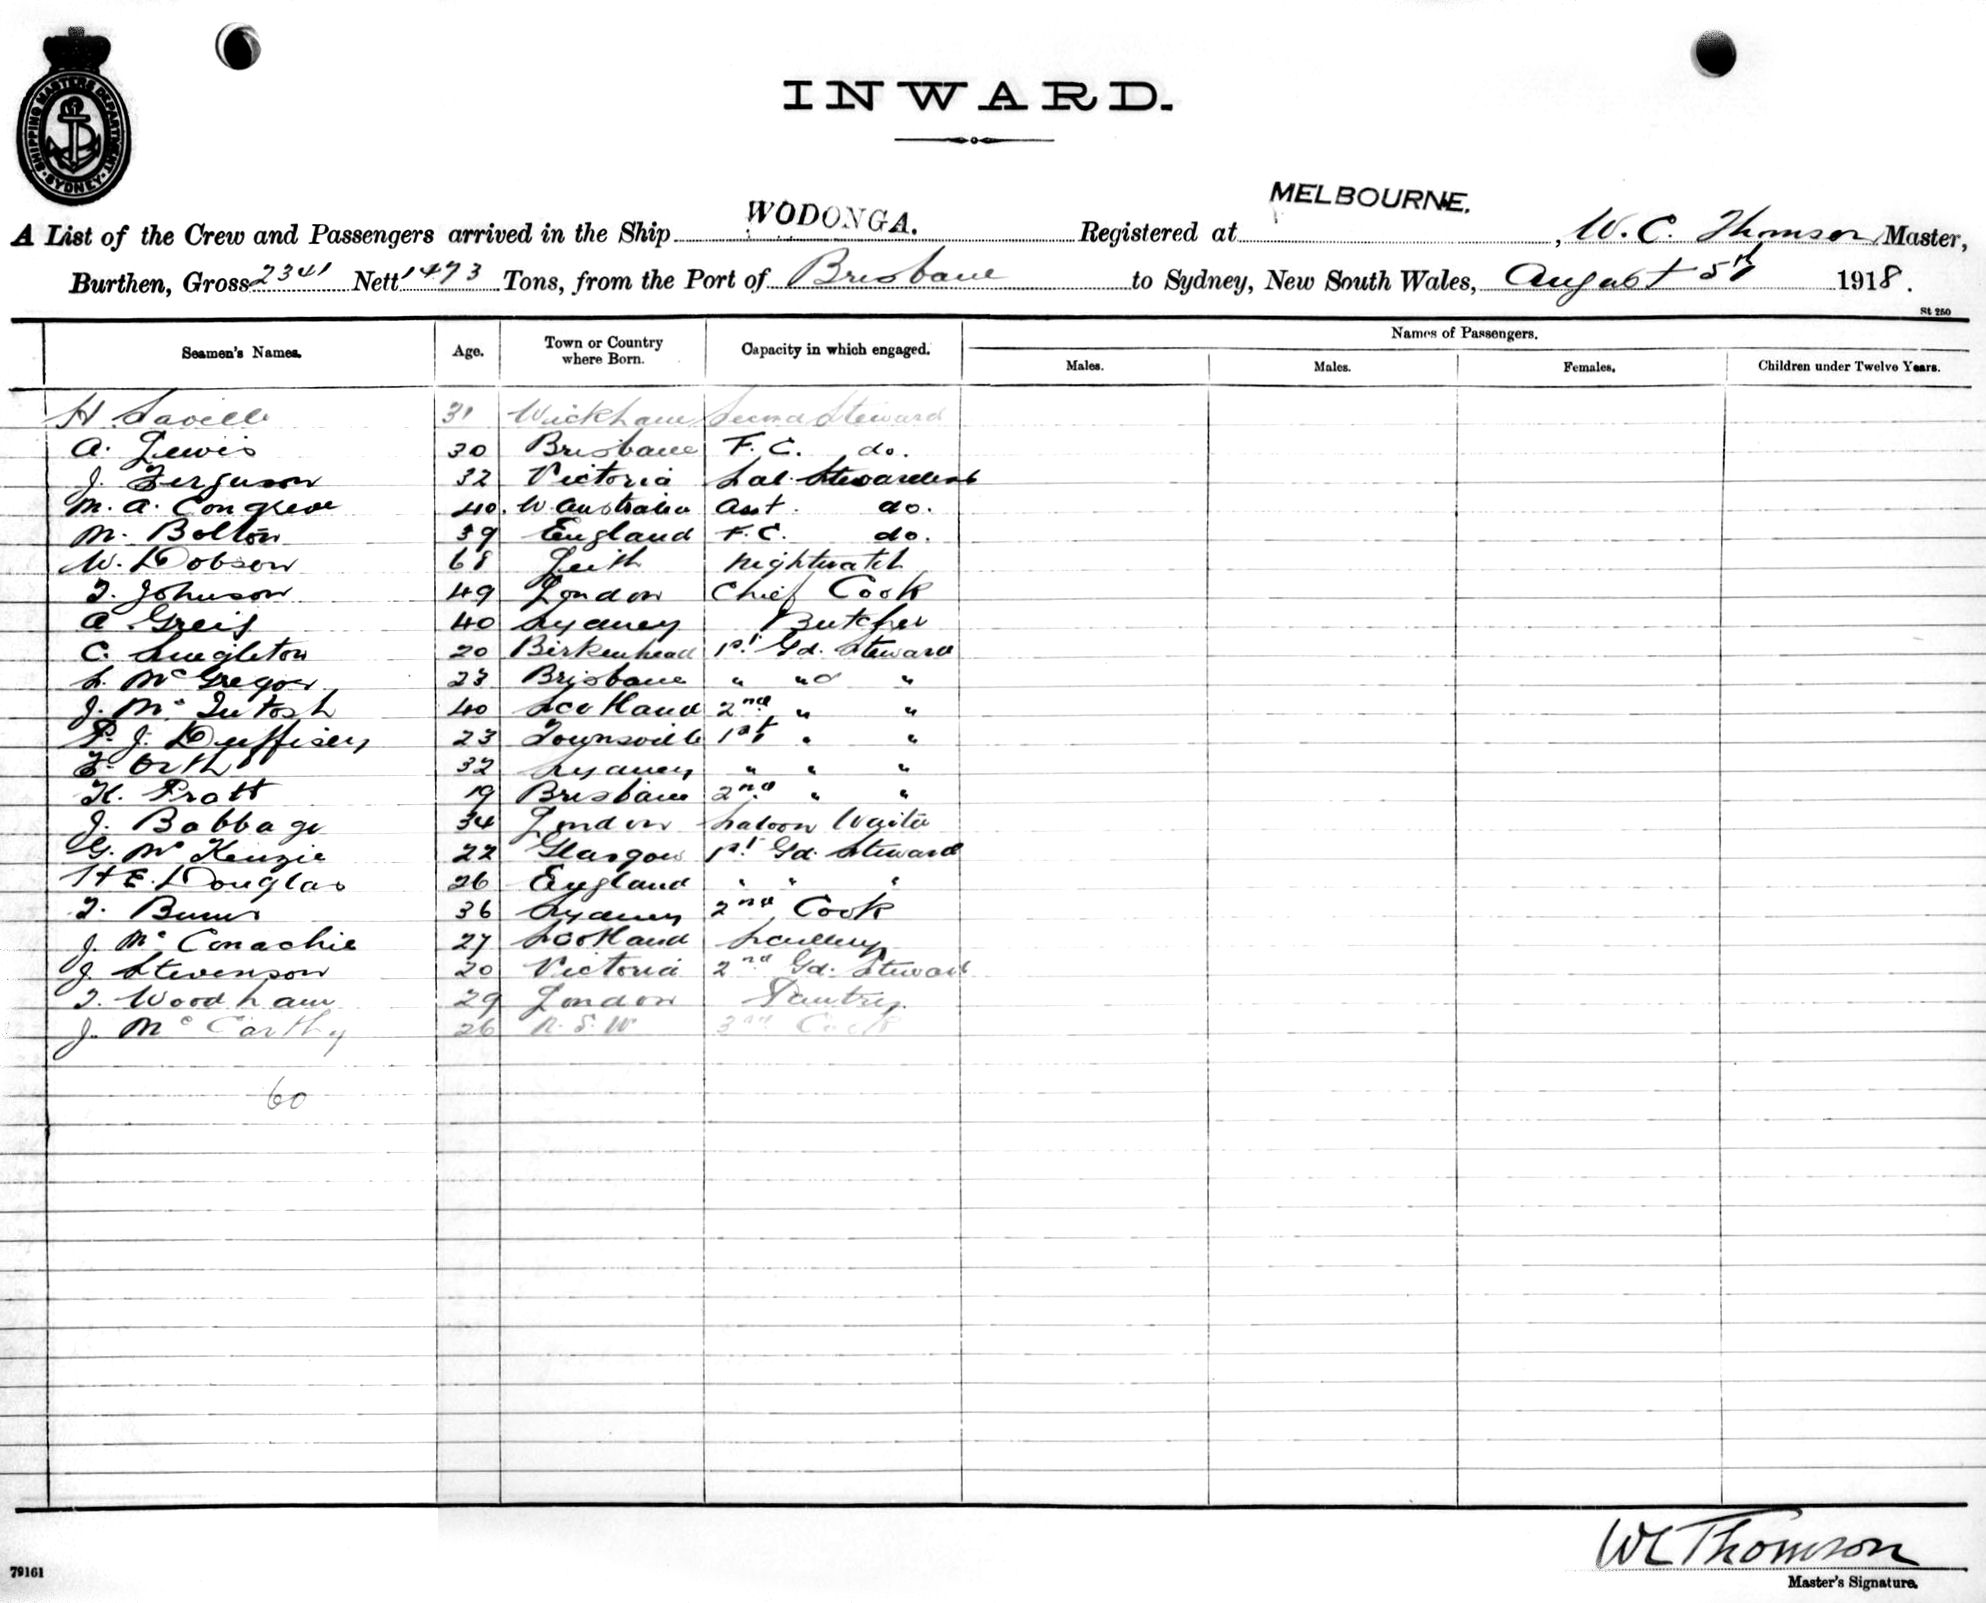 SHIPPING MASTERS DEPARTMENT
SYDNEY
INWARD.
A List of the Crew and Passengers arrived in the Ship WODONGA. Registered at MELBOURNE. , W. C. Thomson, Master,
Burthen, Gross 2341 Nett 1473 Tons, from the Port of Brisbane to Sydney, New South Wales, August 5th 1918.
St 250
Seamen's Names. Age. Town or Country where Born. Capacity in which engaged. Names of Passengers.
Males. Males. Females. Children under Twelve Years.
H. Saville 31 Wickham Second Steward
A. Lewis 30 Brisbane F. C. do.
J. Ferguson 32 Victoria Sal. Stewardess
M. A. Congreve 40. W. Australia Asst. do.
M. Bolton 39 England F. C. do.
W. Dobson 68 Leith Nightwatch
T. Johnson 49 London Chief Cook
A. Greig 40 Sydney Butcher
C. Singleton 20 Birkenhead 1st Gd. Steward
S. McGregor 23 Brisbane " " "
J. McIntosh 40 Scotland 2nd " "
P. J. Duffisey 23 Townsville 1st " "
F. Orth 32 Sydney " " "
H. Pratt 19 Brisbane 2nd " "
J. Babbage 34 London Saloon Waiter
G. McKenzie 22 Glasgow 1st Gd. Steward
H. E. Douglas 26 England " " "
T. Burns 36 Sydney 2nd Cook
J. McConachie 27 Scotland Scullery
J. Stevenson 20 Victoria 2nd Gd. Steward
T. Woodham 29 London Pantry.
J. McCarthy 26 N. S. W 3rd Cook
60
WC Thomson
Master's Signature.
79161